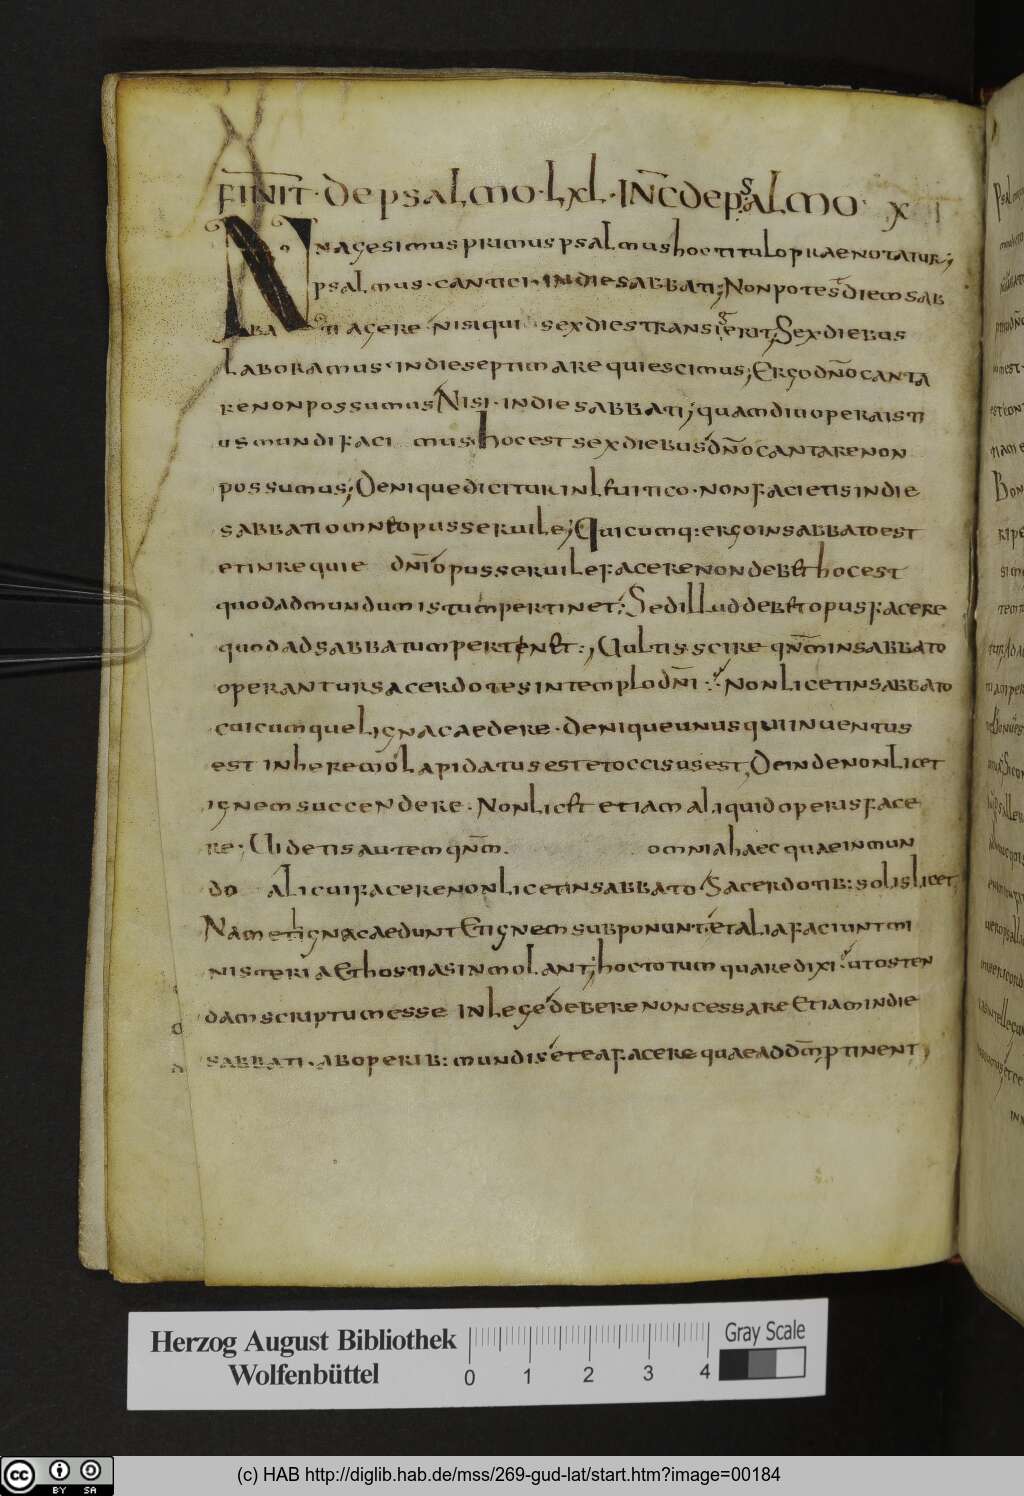 FINIT · DE PSALMO · LXL · INC̄ DE PSALMO · X
NONAGESIMUS PRIMUS PSALMUS HOC TITULO PRAENOTATUR;
PSALMUS · CANTICI · IN DIE SABBATI; NON POTEST DIEM SAB
BATI AGERE · NISI QUI SEX DIES TRANSIERIT; SEX DIEBUS
LABORAMUS · IN DIE SEPTIMA REQUIESCIMUS; ERGO DN̄O CANTA
RE NON POSSUMUS NISI · IN DIE SABBATI; QUAMDIU OPERA ISTI
US MUNDI FACIMUS HOC EST SEX DIEBUS DN̄O CANTARE NON
POSSUMUS; DENIQUE DICITUR IN LEUITICO · NON FACIETIS IN DIE
SABBATI OMNE OPUS SERUILE; QUICUMQ: ERGO IN SABBATO EST
ET IN REQUIE DN̄I OPUS SERUILE FACERE NON DEBET HOC EST
QUOD AD MUNDUM ISTUM PERTINET; SED ILLUD DEBET OPUS FACERE
QUOD AD SABBATUM PERTENET:; UULTIS SCIRE QN̄M IN SABBATO
OPERANTUR SACERDOTES IN TEMPLO DN̄I · NON LICET IN SABBATO
CUICUMQUE LIGNA CAEDERE · DENIQUE UNUS QUI INUENTUS
EST IN HEREMO LAPIDATUS EST ET OCCISUS EST, DEINDE NON LICET
IGNEM SUCCENDERE · NON LICET ETIAM ALIQUID OPERIS FACE
RE; UIDETIS AUTEM QN̄M OMNIA HAEC QUAE IN MUN
DO ALICUI FACERE NON LICET IN SABBATO SACERDOTIB: SOLIS LICET,
NAM ET LIGNA CAEDUNT ET IGNEM SUBPONUNT ET ALIA FACIUNT MI
NISTERIA ET HOSTIAS INMOLANT; HOC TOTUM QUARE DIXI UT OSTEN
DAM SCRIPTUM ESSE IN LEGE DEBERE NON CESSARE ETIAM IN DIE
SABBATI · AB OPERIB: MUNDIS ET EA FACERE QUAE AD DM̄ PTINENT,
Herzog August Bibliothek
Wolfenbüttel
0 1 2 3 4
Gray Scale
cc BY SA
(c) HAB http://diglib.hab.de/mss/269-gud-lat/start.htm?image=00184